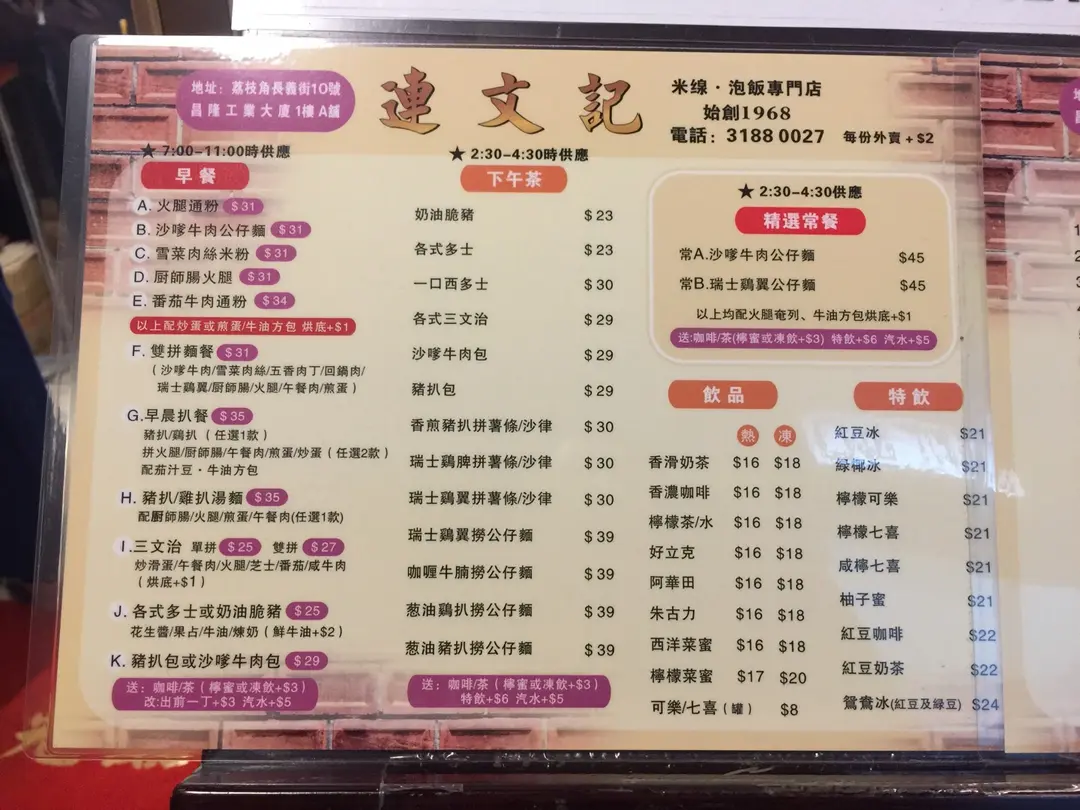 地址：荔枝角長義街10號
昌隆工業大廈1樓A舖
連文記
米缐·泡飯專門店
始創1968
電話：3188 0027 每份外賣+$2
★ 7:00-11:00時供應
早餐
A. 火腿通粉 $31
B. 沙嗲牛肉公仔麵 $31
C. 雪菜肉絲米粉 $31
D. 厨師腸火腿 $31
E. 番茄牛肉通粉 $34
以上配炒蛋或煎蛋/牛油方包 烘底+$1
F. 雙拼麵餐 $31
（沙嗲牛肉/雪菜肉絲/五香肉丁/回鍋肉/
瑞士鷄翼/厨師腸/火腿/午餐肉/煎蛋）
G. 早晨扒餐 $35
豬扒/鷄扒（任選1款）
拼火腿/厨師腸/午餐肉/煎蛋/炒蛋（任選2款）
配茄汁豆·牛油方包
H. 豬扒/雞扒湯麵 $35
配厨師腸/火腿/煎蛋/午餐肉(任選1款)
I. 三文治 單拼 $25 雙拼 $27
炒滑蛋/午餐肉/火腿/芝士/番茄/咸牛肉
（烘底+$1）
J. 各式多士或奶油脆豬 $25
花生醬/果占/牛油/煉奶（鮮牛油+$2）
K. 豬扒包或沙嗲牛肉包 $29
送：咖啡/茶（檸蜜或凍飲+$3）
改:出前一丁+$3 汽水+$5
★ 2:30-4:30時供應
下午茶
奶油脆豬 $23
各式多士 $23
一口西多士 $30
各式三文治 $29
沙嗲牛肉包 $29
豬扒包 $29
香煎豬扒拼薯條/沙律 $30
瑞士鷄脾拼薯條/沙律 $30
瑞士鷄翼拼薯條/沙律 $30
瑞士鷄翼撈公仔麵 $39
咖喱牛腩撈公仔麵 $39
葱油鷄扒撈公仔麵 $39
葱油豬扒撈公仔麵 $39
送：咖啡/茶（檸蜜或凍飲+$3）
特飲+$6 汽水+$5
★ 2:30-4:30供應
精選常餐
常A.沙嗲牛肉公仔麵 $45
常B.瑞士鷄翼公仔麵 $45
以上均配火腿奄列、牛油方包烘底+$1
送:咖啡/茶(檸蜜或凍飲+$3) 特飲+$6 汽水+$5
飲品
熱 凍
香滑奶茶 $16 $18
香濃咖啡 $16 $18
檸檬茶/水 $16 $18
好立克 $16 $18
阿華田 $16 $18
朱古力 $16 $18
西洋菜蜜 $16 $18
檸檬菜蜜 $17 $20
可樂/七喜（罐） $8
特飲
紅豆冰 $21
綠椰冰 $21
檸檬可樂 $21
檸檬七喜 $21
咸檸七喜 $21
柚子蜜 $21
紅豆咖啡 $22
紅豆奶茶 $22
鴛鴦冰(紅豆及綠豆) $24